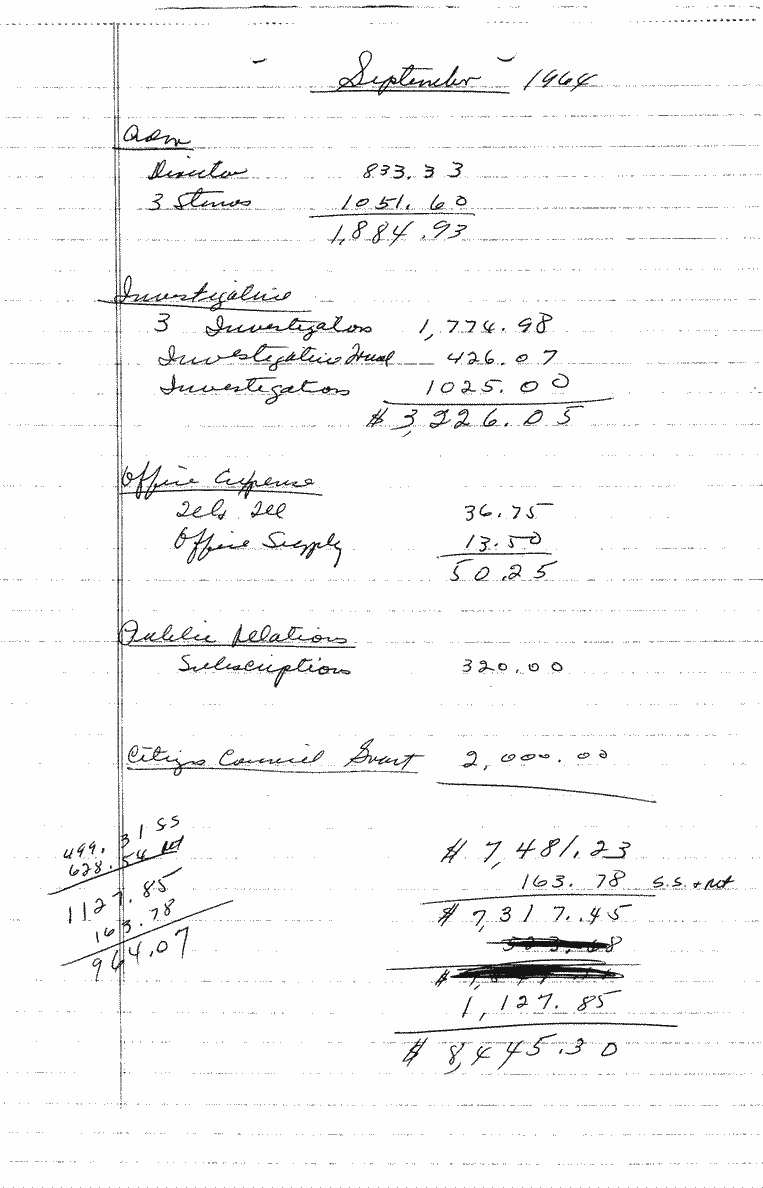 September 1964
Adm
Director 833.33
3 Stenos 1051.60
1,884.93
Investigative
3 Investigators 1,774.98
Investigative Travel 426.07
Investigations 1025.00
$ 3,226.05
Office Expense
Tel & Tel 36.75
Office Supply 13.50
50.25
Public Relations
Subscriptions 320.00
Citizs Council Grant 2,000.00
499.31 SS
628.54 Ret
1127.85
163.78
964.07
$ 7,481.23
163.78 S.S. + Ret
$ 7,317.45
1,127.85
$ 8,445.30